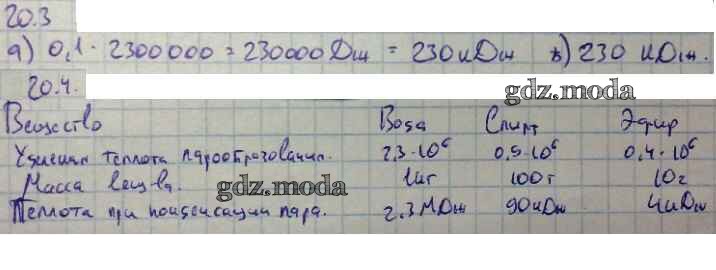 20.3
а) 0,1 · 2300000 = 230000 Дж = 230 кДж б) 230 кДж.
20.4.
gdz.moda
Вещество Вода Спирт Эфир
Удельная теплота парообразования. 2,3·10⁶ 0,9·10⁶ 0,4·10⁶
Масса вещ-ва. 1кг 100г 10г
gdz.moda
Теплота при конденсации пара. 2,3 МДж 90кДж 4кДж